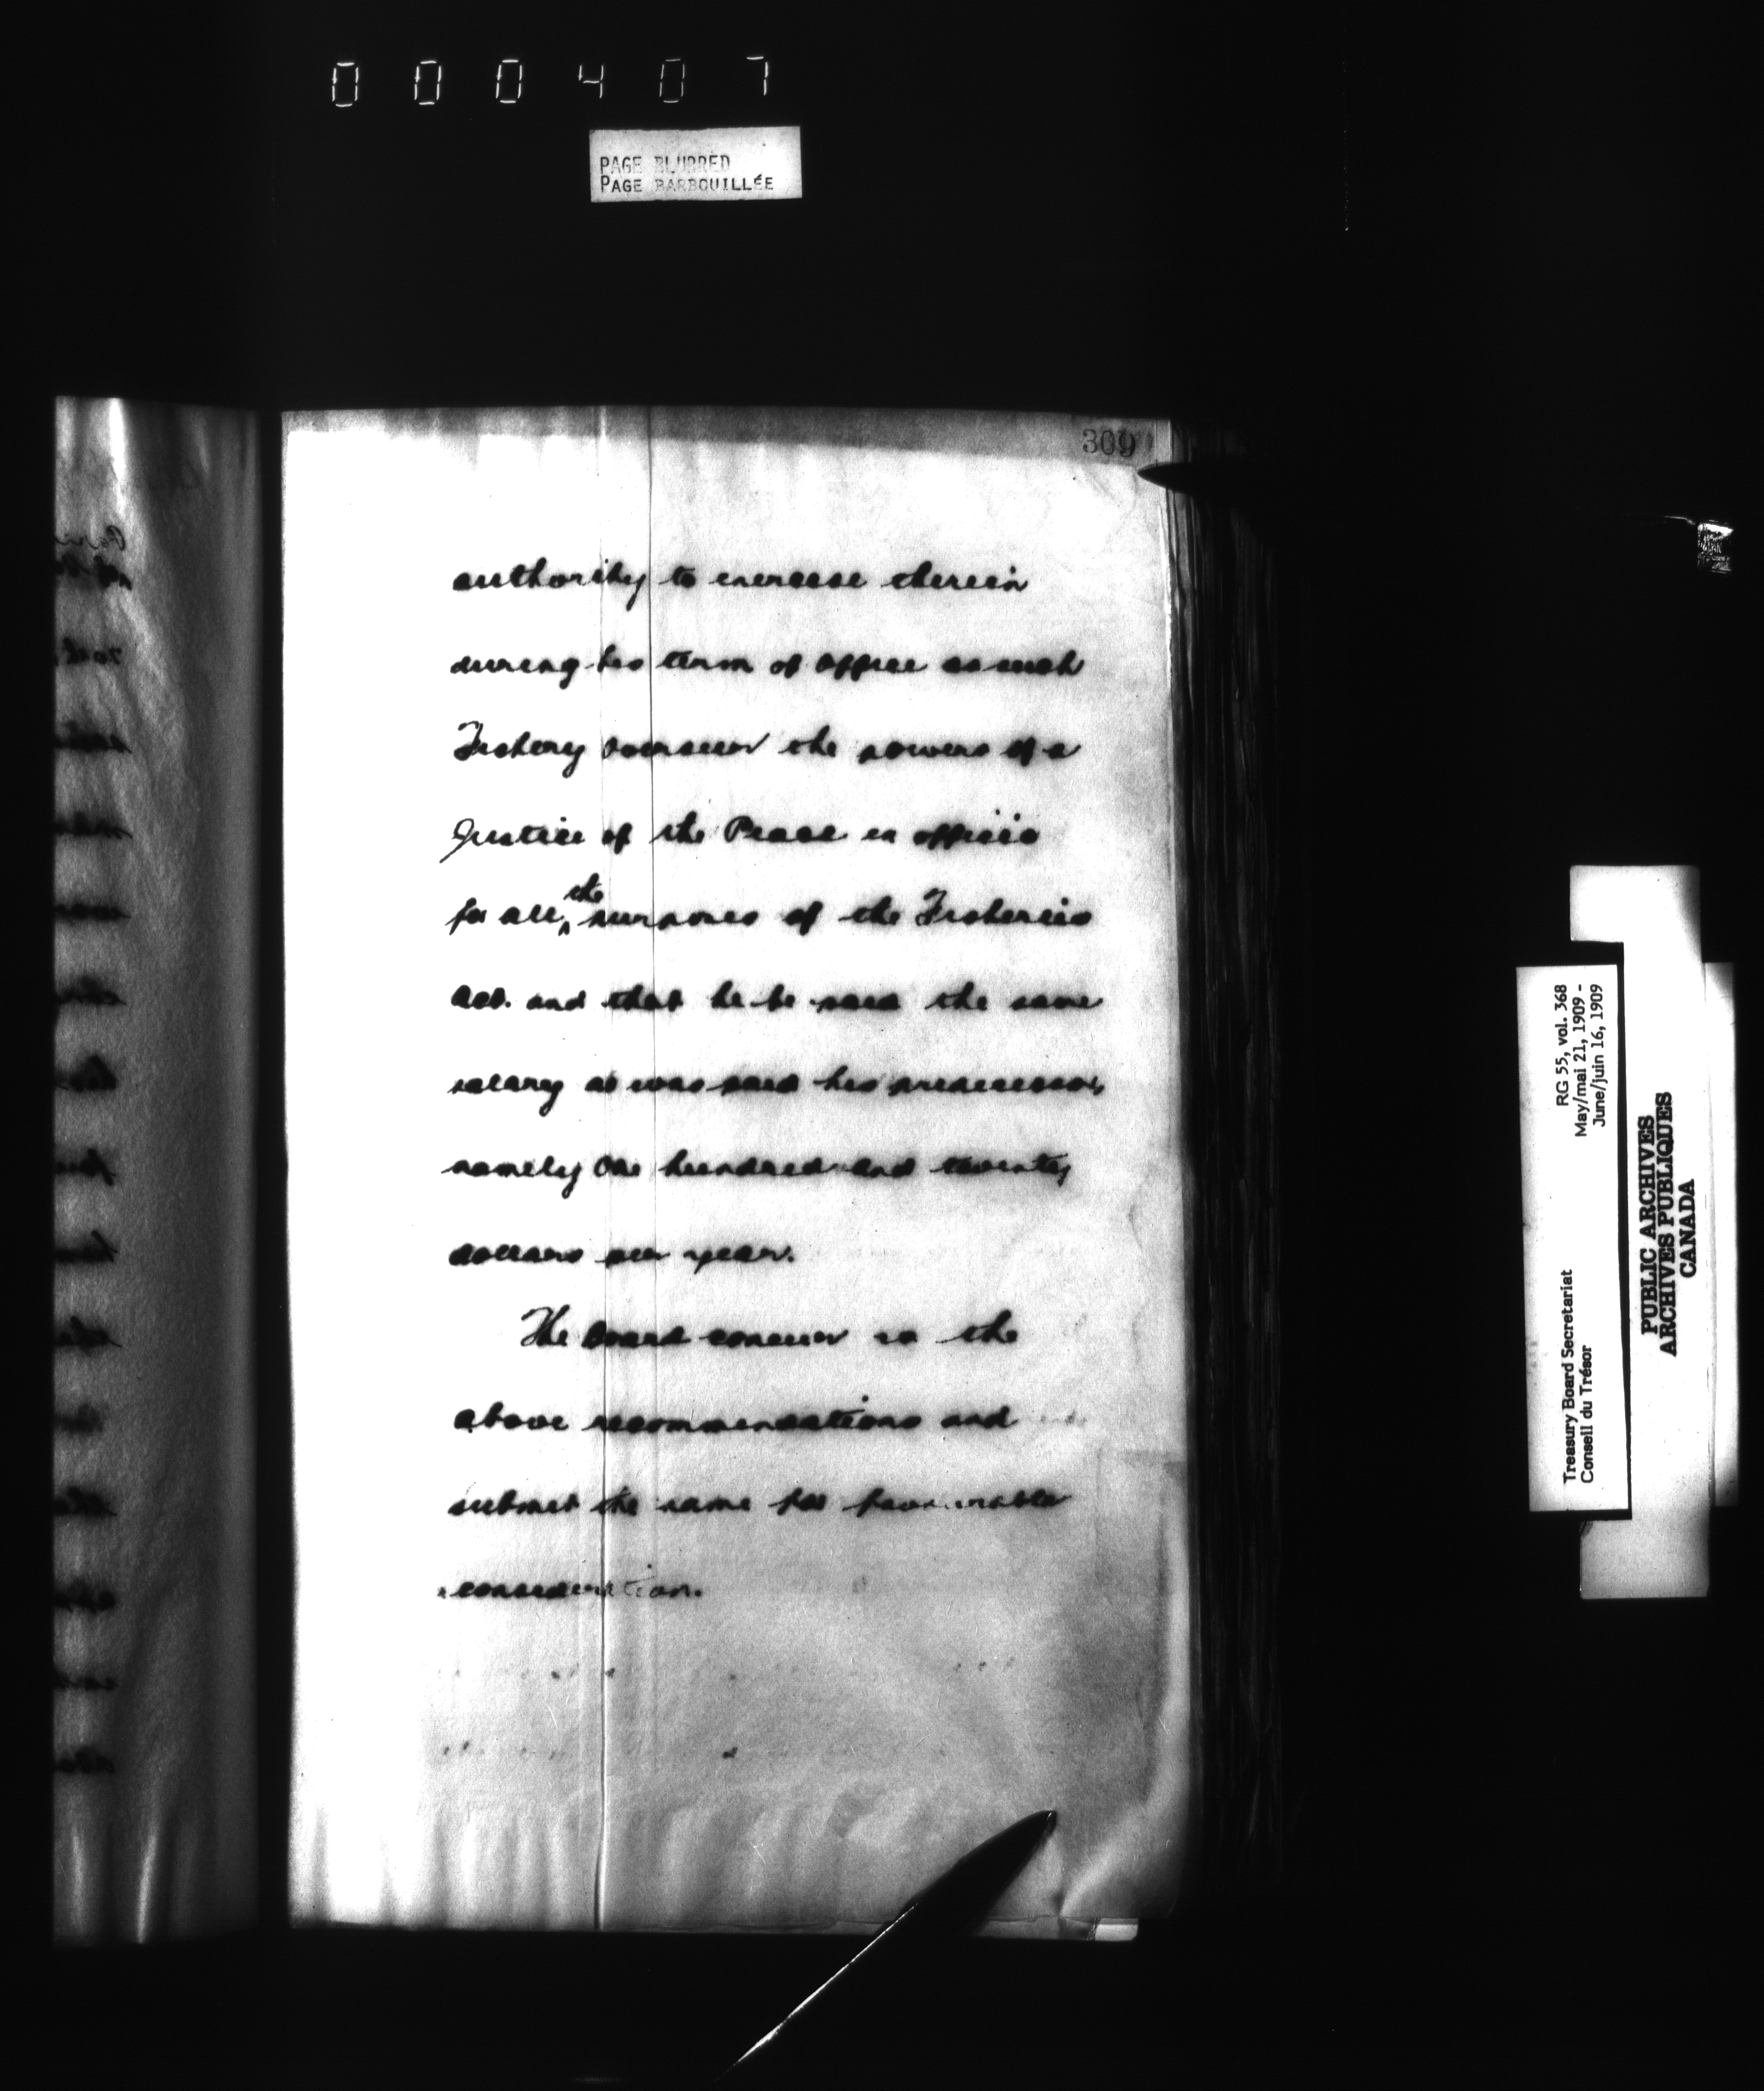 000407
PAGE BLURRED
PAGE BARBOUILLÉE
309
authority to exercise therein
during his term of office as such
Fishery Overseer the powers of a
Justice of the Peace ex officio
for all the purposes of the Fisheries
Act. and that he be paid the same
salary as was paid his predecessor,
namely One hundred and twenty
dollars per year.
The Board concur in the
above recommendations and
submit the same for favourable
consideration.
RG 55, vol. 368
May/mai 21, 1909 -
June/juin 16, 1909
Treasury Board Secretariat
Conseil du Trésor
PUBLIC ARCHIVES
ARCHIVES PUBLIQUES
CANADA